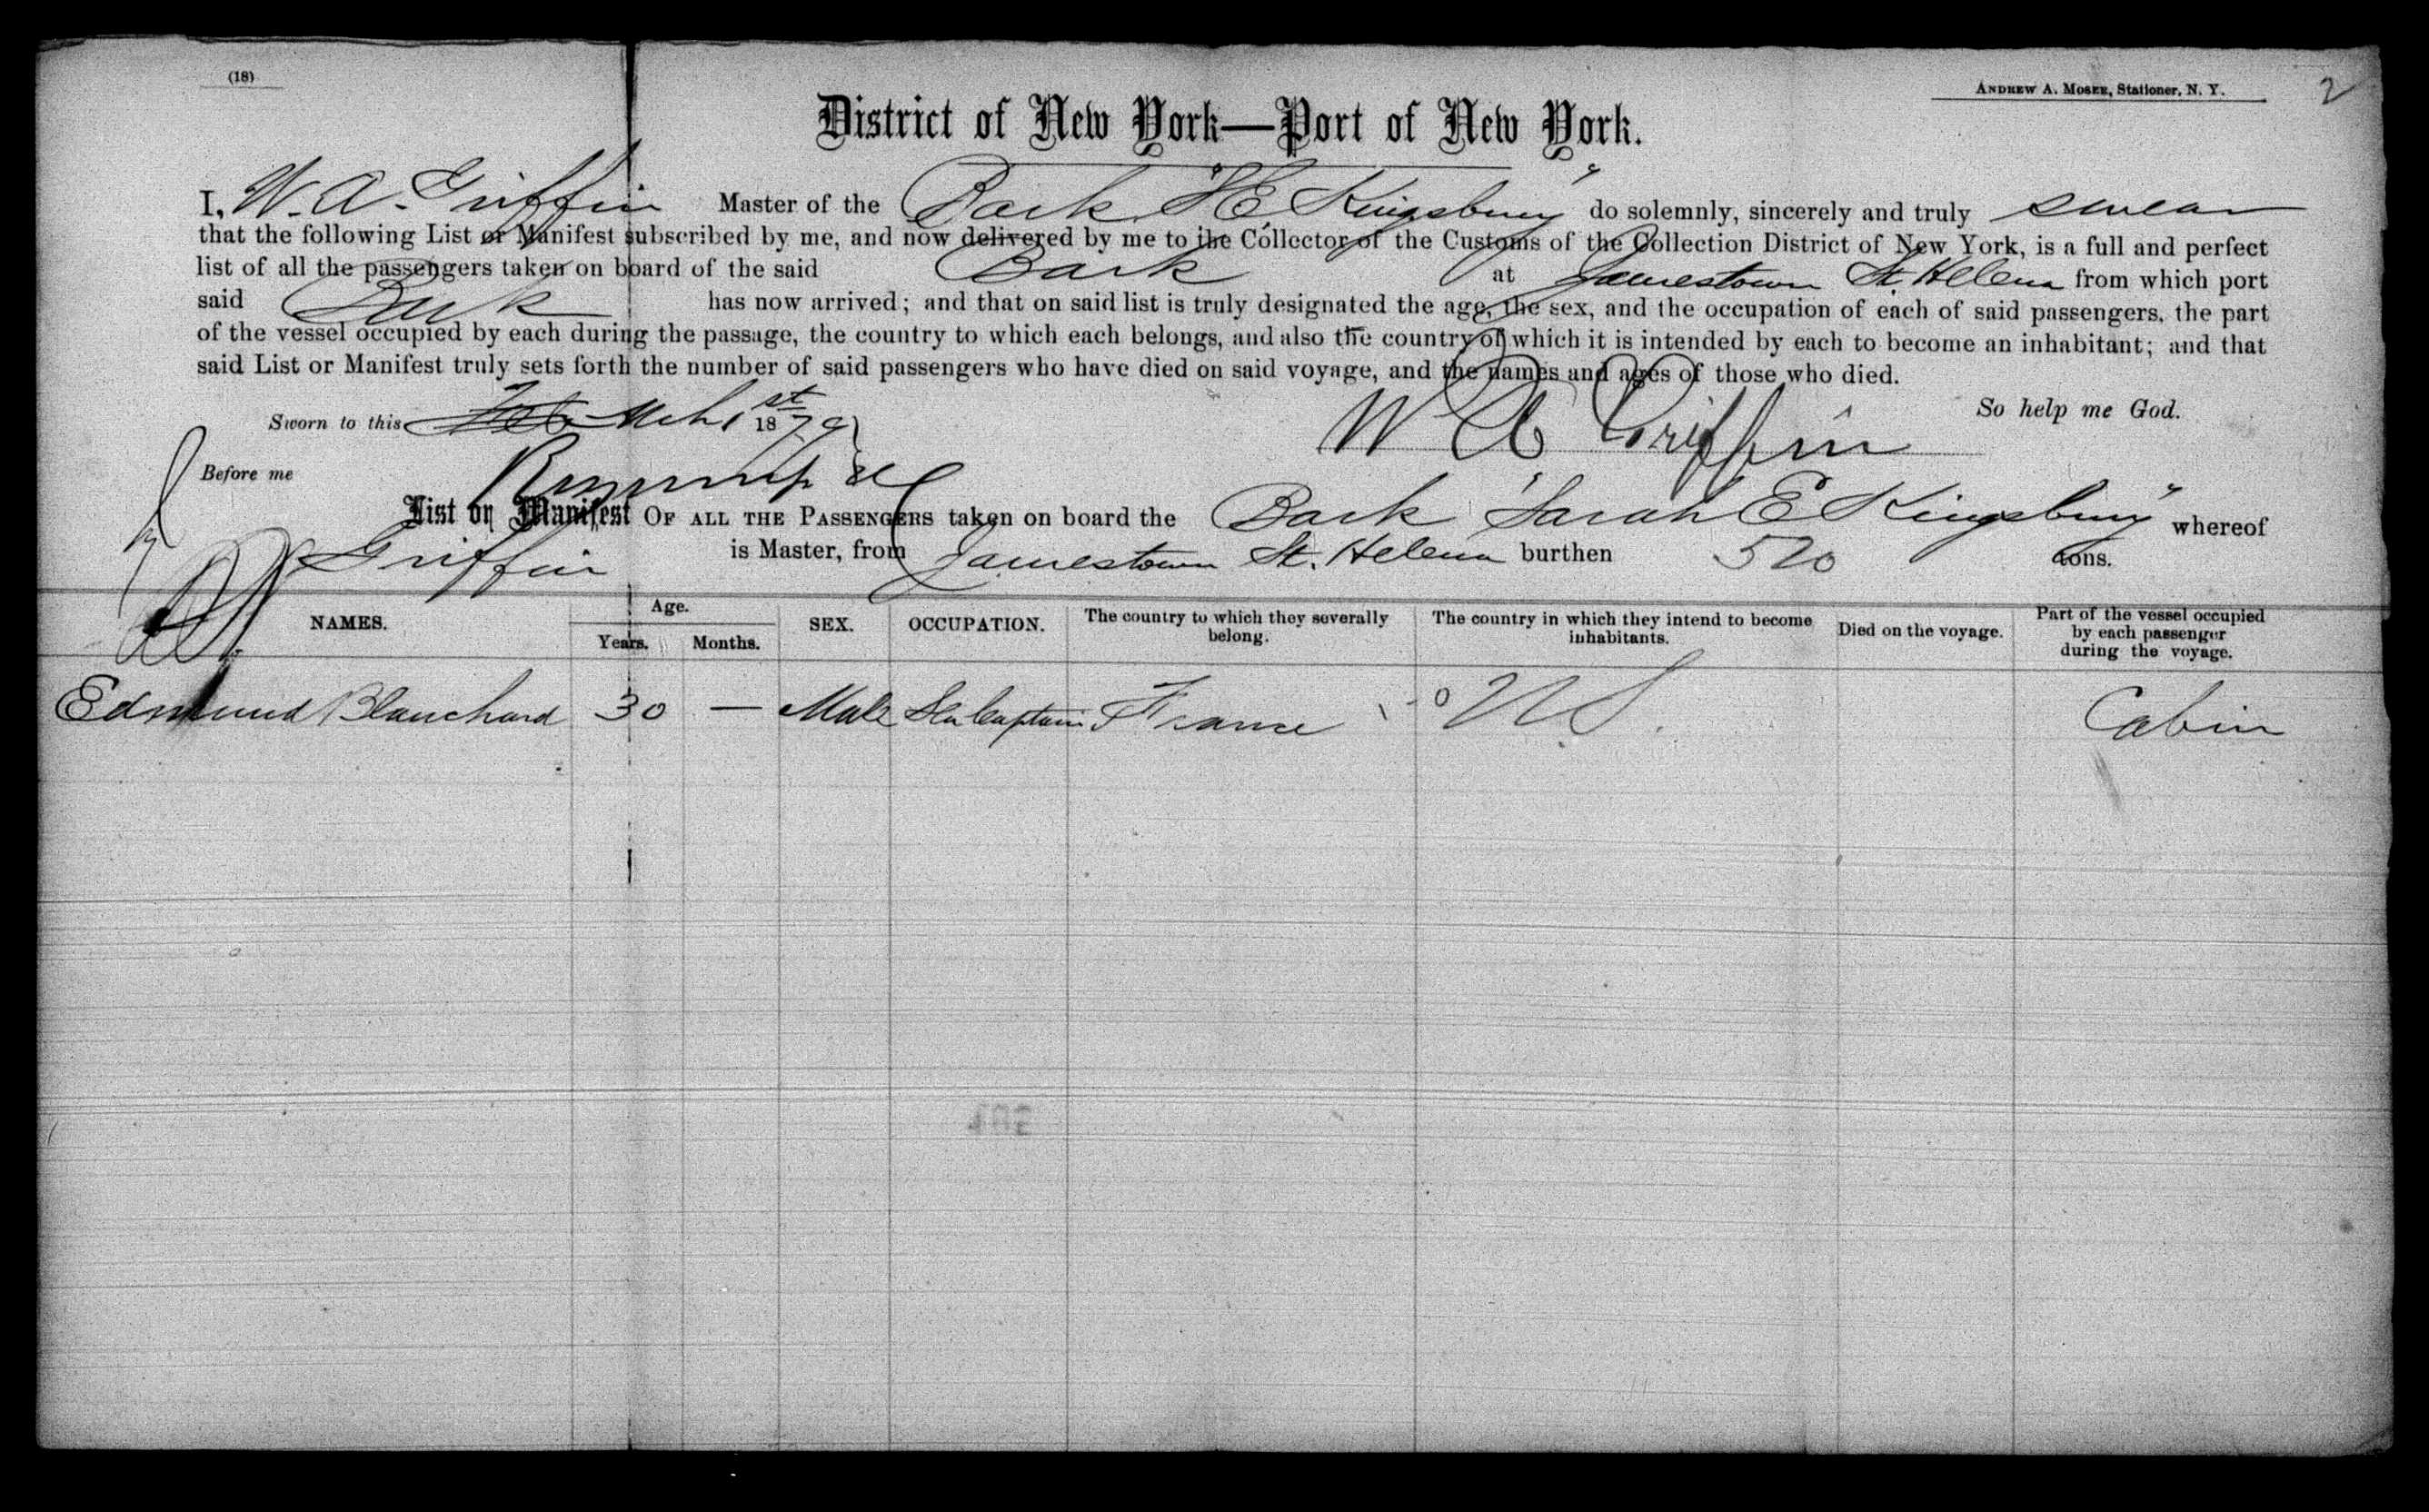 (18)
ANDREW A. MOSER, Stationer, N. Y.
2
District of New York—Port of New York.
I, W. A. Griffin Master of the Bark "S E Kingsbury" do solemnly, sincerely and truly swear
that the following List or Manifest subscribed by me, and now delivered by me to the Collector of the Customs of the Collection District of New York, is a full and perfect
list of all the passengers taken on board of the said Bark at Jamestown St. Helena from which port
said Bark has now arrived; and that on said list is truly designated the age, the sex, and the occupation of each of said passengers, the part
of the vessel occupied by each during the passage, the country to which each belongs, and also the country of which it is intended by each to become an inhabitant; and that
said List or Manifest truly sets forth the number of said passengers who have died on said voyage, and the names and ages of those who died.
So help me God.
Sworn to this Feb Mch 1st 1879
W A Griffin
Before me
List or Manifest OF ALL THE PASSENGERS taken on board the Bark "Sarah E Kingsbury" whereof
Griffin is Master, from Jamestown St. Helena burthen 520 tons.
NAMES. Age. Years. Months. SEX. OCCUPATION. The country to which they severally belong. The country in which they intend to become inhabitants. Died on the voyage. Part of the vessel occupied by each passenger during the voyage.
Edmund Blanchard 30 — Male Sea Captain France U S. Cabin